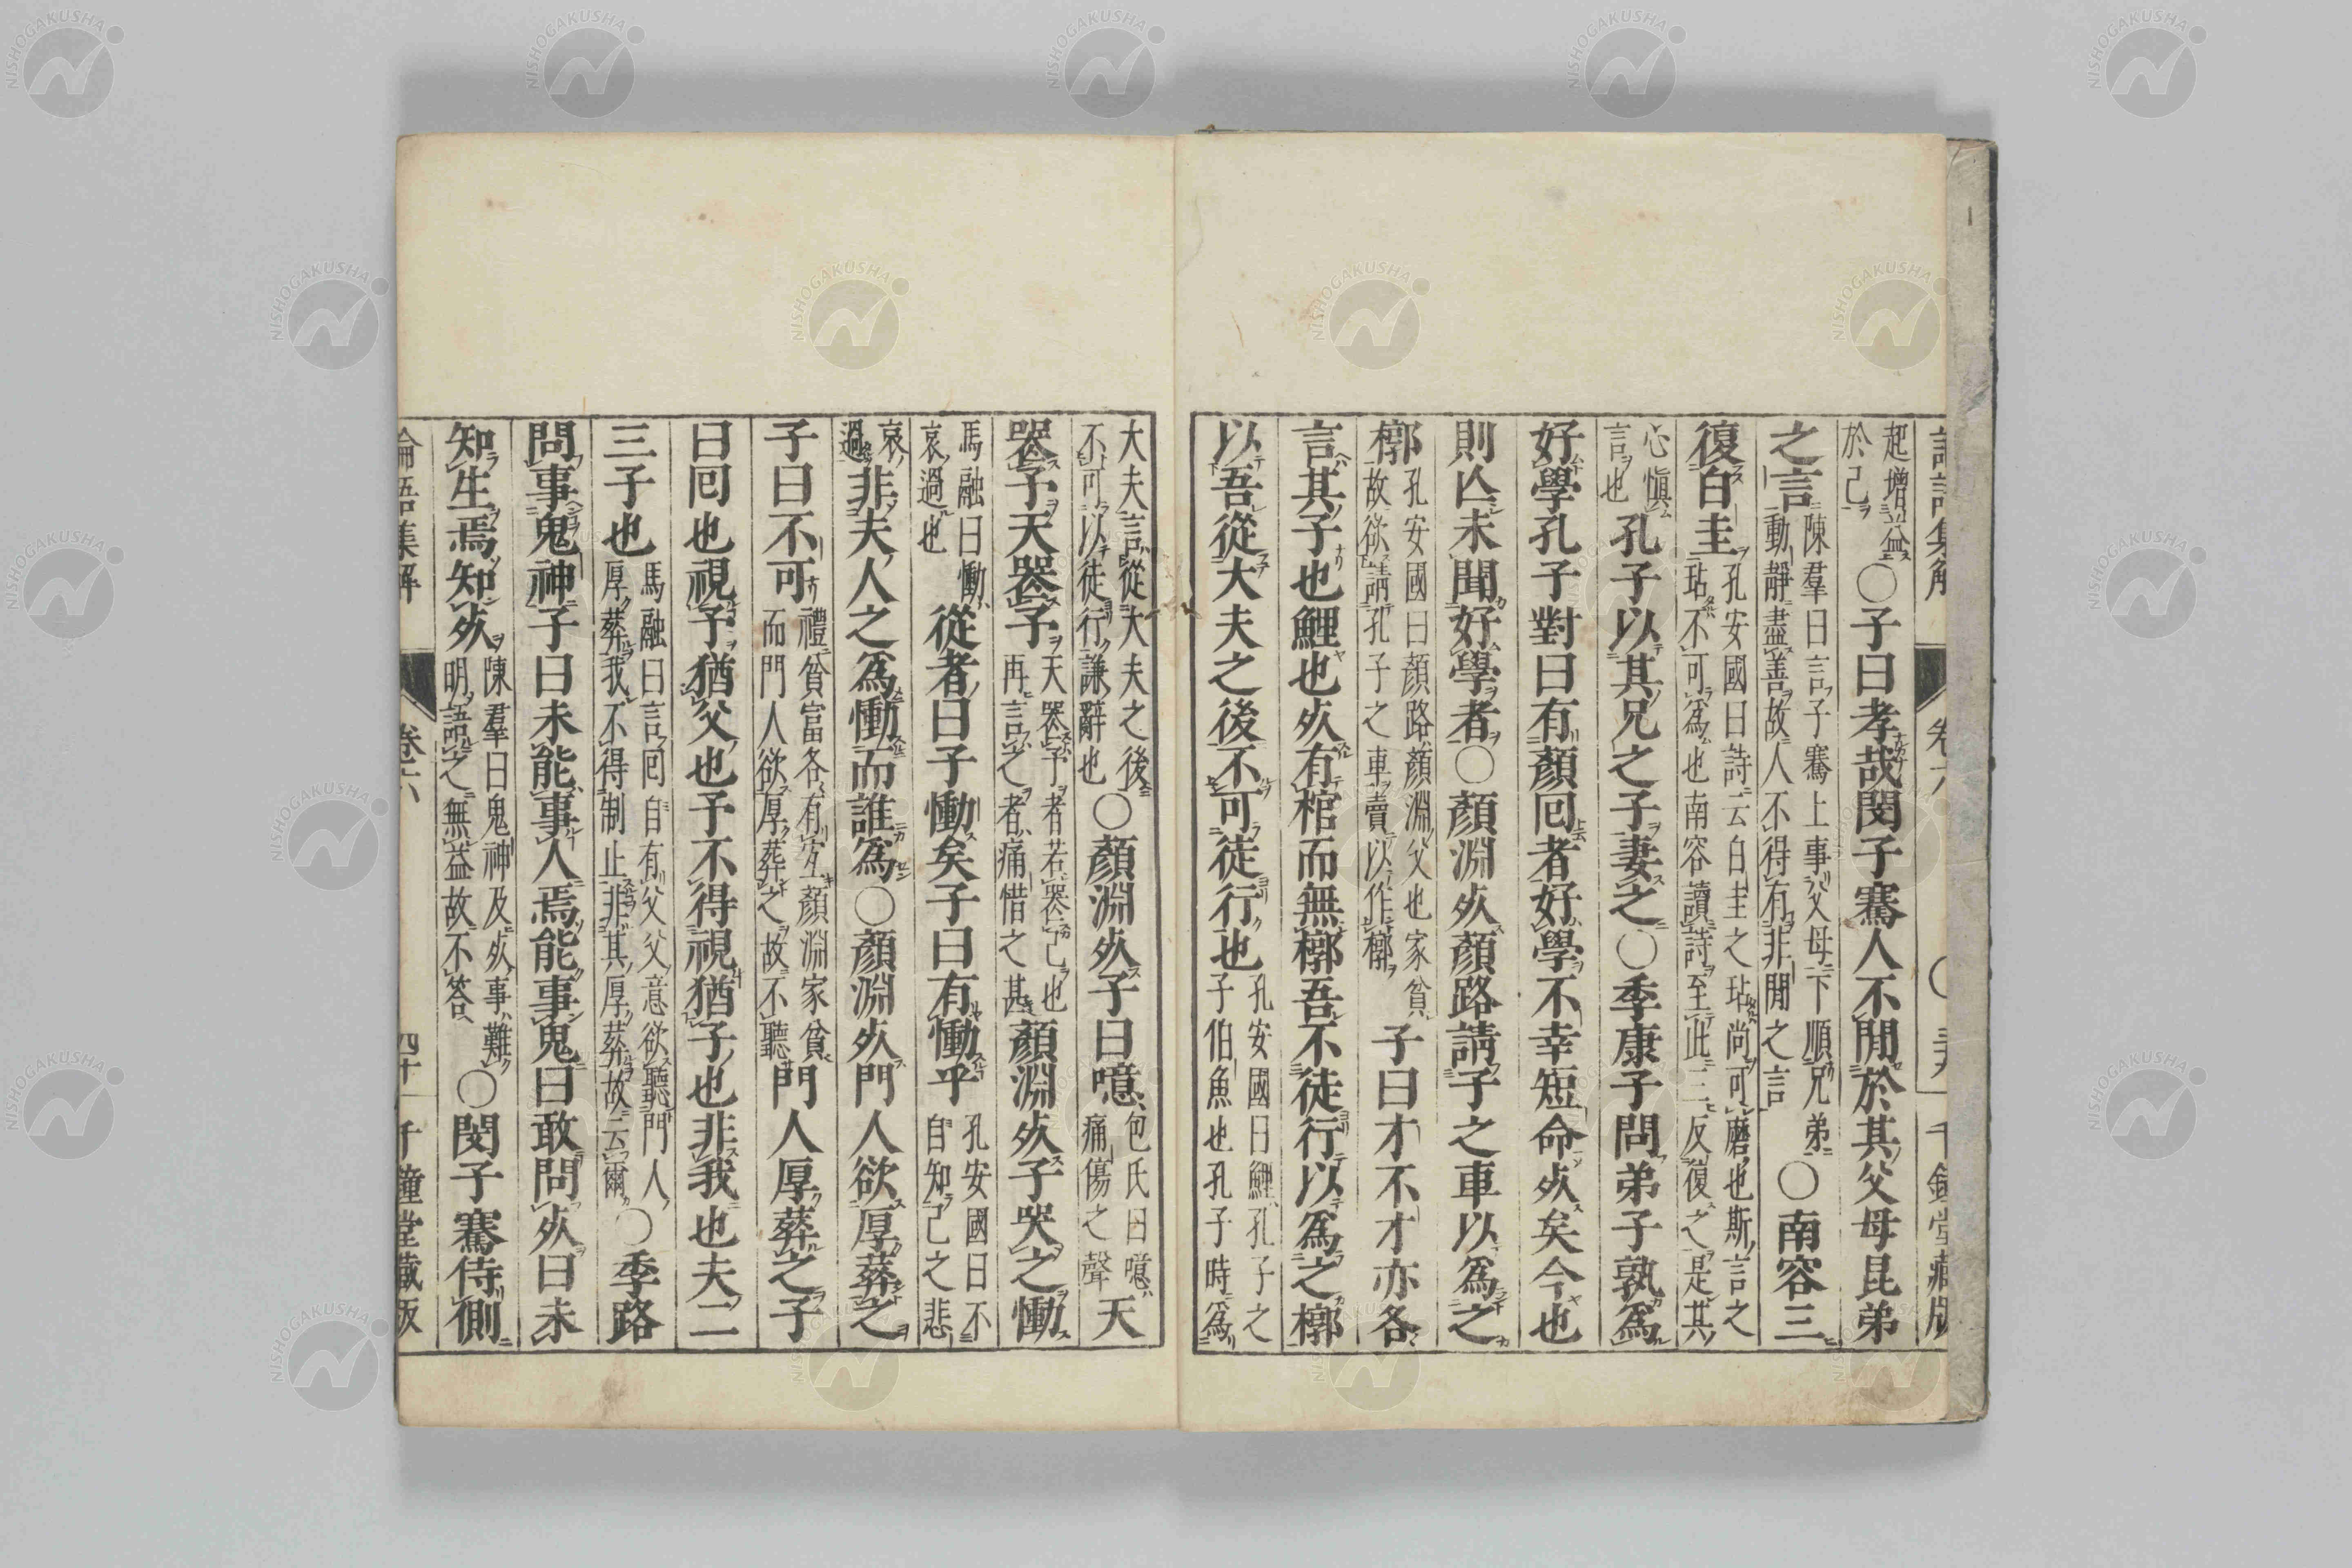 論語集解 卷六 ○ 三十九 千鍾堂藏版
起增益
於己
○子曰孝哉閔子騫人不閒於其父母昆弟
之言
陳羣曰言子騫上事父母下順兄弟
動靜盡善故人不得有非閒之言
○南容三
復白圭
孔安國曰詩云白圭之玷尚可磨也斯言之
玷不可爲也南容讀詩至此三反復之是其
心愼
言也
孔子以其兄之子妻之○季康子問弟子孰爲
好學孔子對曰有顏囘者好學不幸短命死矣今也
則亾未聞好學者○顏淵死顏路請子之車以爲之
槨
孔安國曰顏路顏淵父也家貧
故欲請孔子之車賣以作槨
子曰才不才亦各
言其子也鯉也死有棺而無槨吾不徒行以爲之槨
以吾從大夫之後不可徒行也
孔安國曰鯉孔子之
子伯魚也孔子時爲
大夫言從大夫之後
不可以徒行謙辭也
○顏淵死子曰噫
包氏曰噫
痛傷之聲
天
喪予天喪予
天喪予者若喪己也
再言之者痛惜之甚
顏淵死子哭之慟
馬融曰慟
哀過也
從者曰子慟矣子曰有慟乎
孔安國曰不
自知己之悲
哀
過
非夫人之爲慟而誰爲○顏淵死門人欲厚葬之
子曰不可
禮貧富各有宜顏淵家貧
而門人欲厚葬之故不聽
門人厚葬之子
曰囘也視予猶父也予不得視猶子也非我也夫二
三子也
馬融曰言囘自有父父意欲聽門人
厚葬我不得制止非其厚葬故云爾
○季路
問事鬼神子曰未能事人焉能事鬼曰敢問死曰未
知生焉知死
陳羣曰鬼神及死事難
明語之無益故不答
○閔子騫侍側
論語集解 卷六 四十 千鍾堂藏版
NISHOGAKUSHA